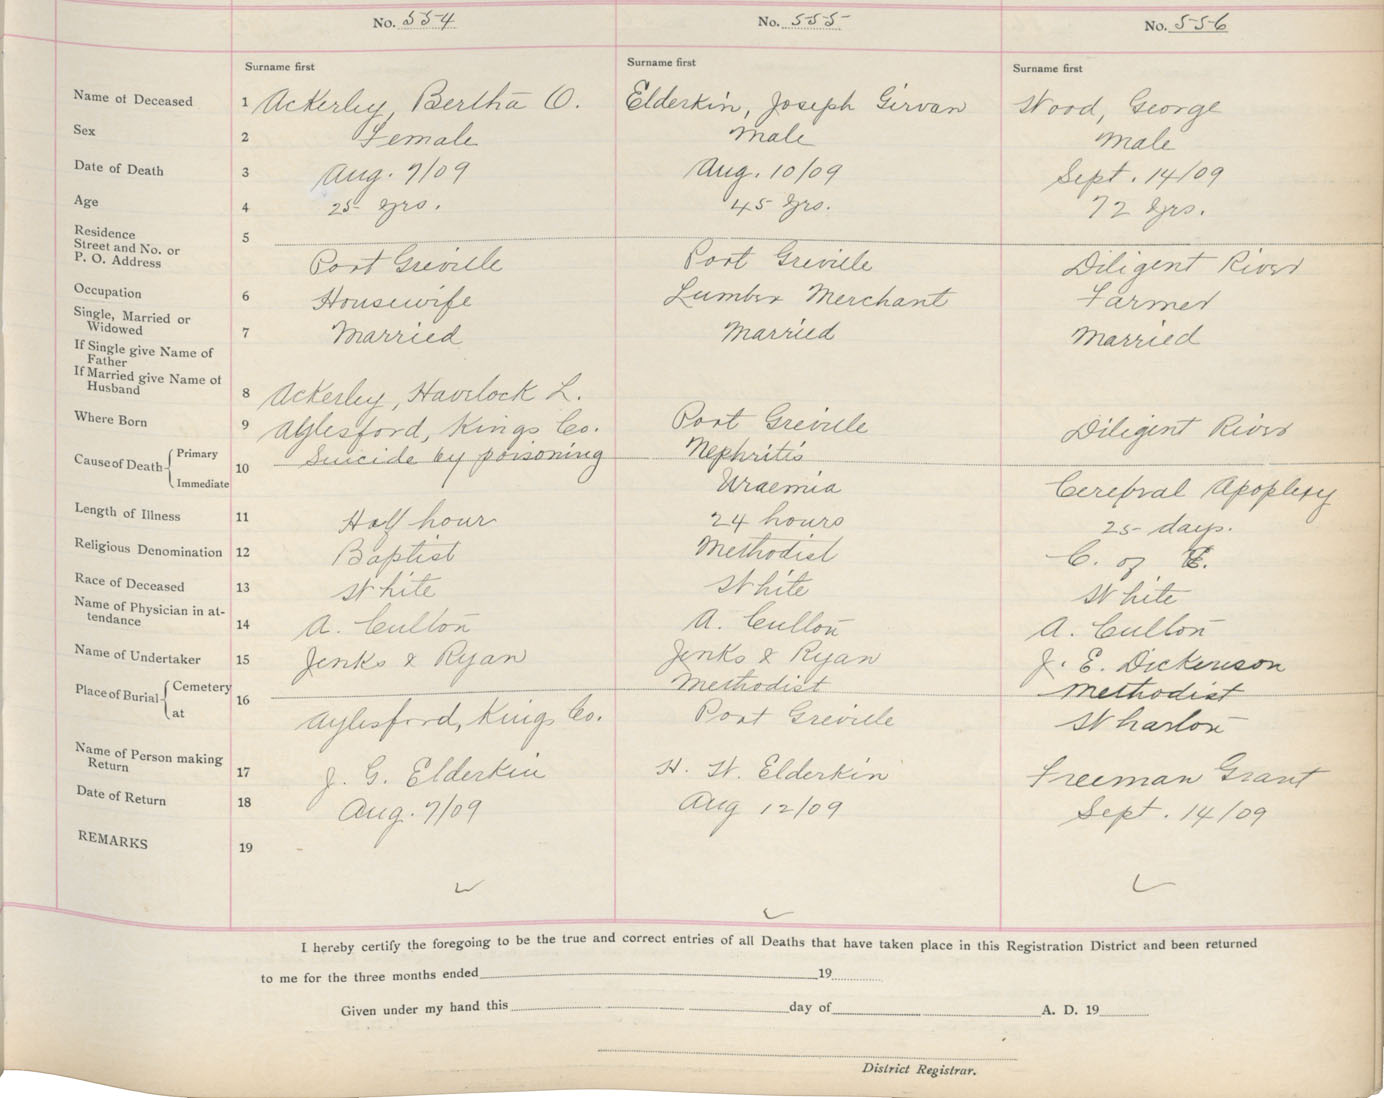 No. 554 No. 555 No. 556
Surname first Surname first Surname first
Name of Deceased 1 Ackerley, Bertha O. Elderkin, Joseph Girvan Wood, George
Sex 2 Female Male Male
Date of Death 3 Aug. 7/09 Aug. 10/09 Sept. 14/09
Age 4 25 yrs. 45 yrs. 72 yrs.
Residence 5
Street and No. or
P. O. Address Port Greville Port Greville Diligent River
Occupation 6 Housewife Lumber Merchant Farmer
Single, Married or
Widowed 7 Married Married Married
If Single give Name of
Father
If Married give Name of
Husband 8 Ackerley, Havelock L.
Where Born 9 Aylesford, Kings Co. Port Greville Diligent River
Cause of Death Primary 10 Suicide by poisoning Nephritis
Immediate Uraemia Cerebral Apoplexy
Length of Illness 11 Half hour 24 hours 25 days.
Religious Denomination 12 Baptist Methodist C. of E.
Race of Deceased 13 White White White
Name of Physician in at-
tendance 14 A. Cullon A. Cullon A. Cullon
Name of Undertaker 15 Jenks & Ryan Jenks & Ryan J. E. Dickenson
Place of Burial Cemetery 16 Methodist Methodist
at Aylesford, Kings Co. Port Greville Wharlon
Name of Person making
Return 17 J. G. Elderkin H. W. Elderkin Freeman Grant
Date of Return 18 Aug. 7/09 Aug 12/09 Sept. 14/09
REMARKS 19
I hereby certify the foregoing to be the true and correct entries of all Deaths that have taken place in this Registration District and been returned
to me for the three months ended 19
Given under my hand this day of A. D. 19
District Registrar.